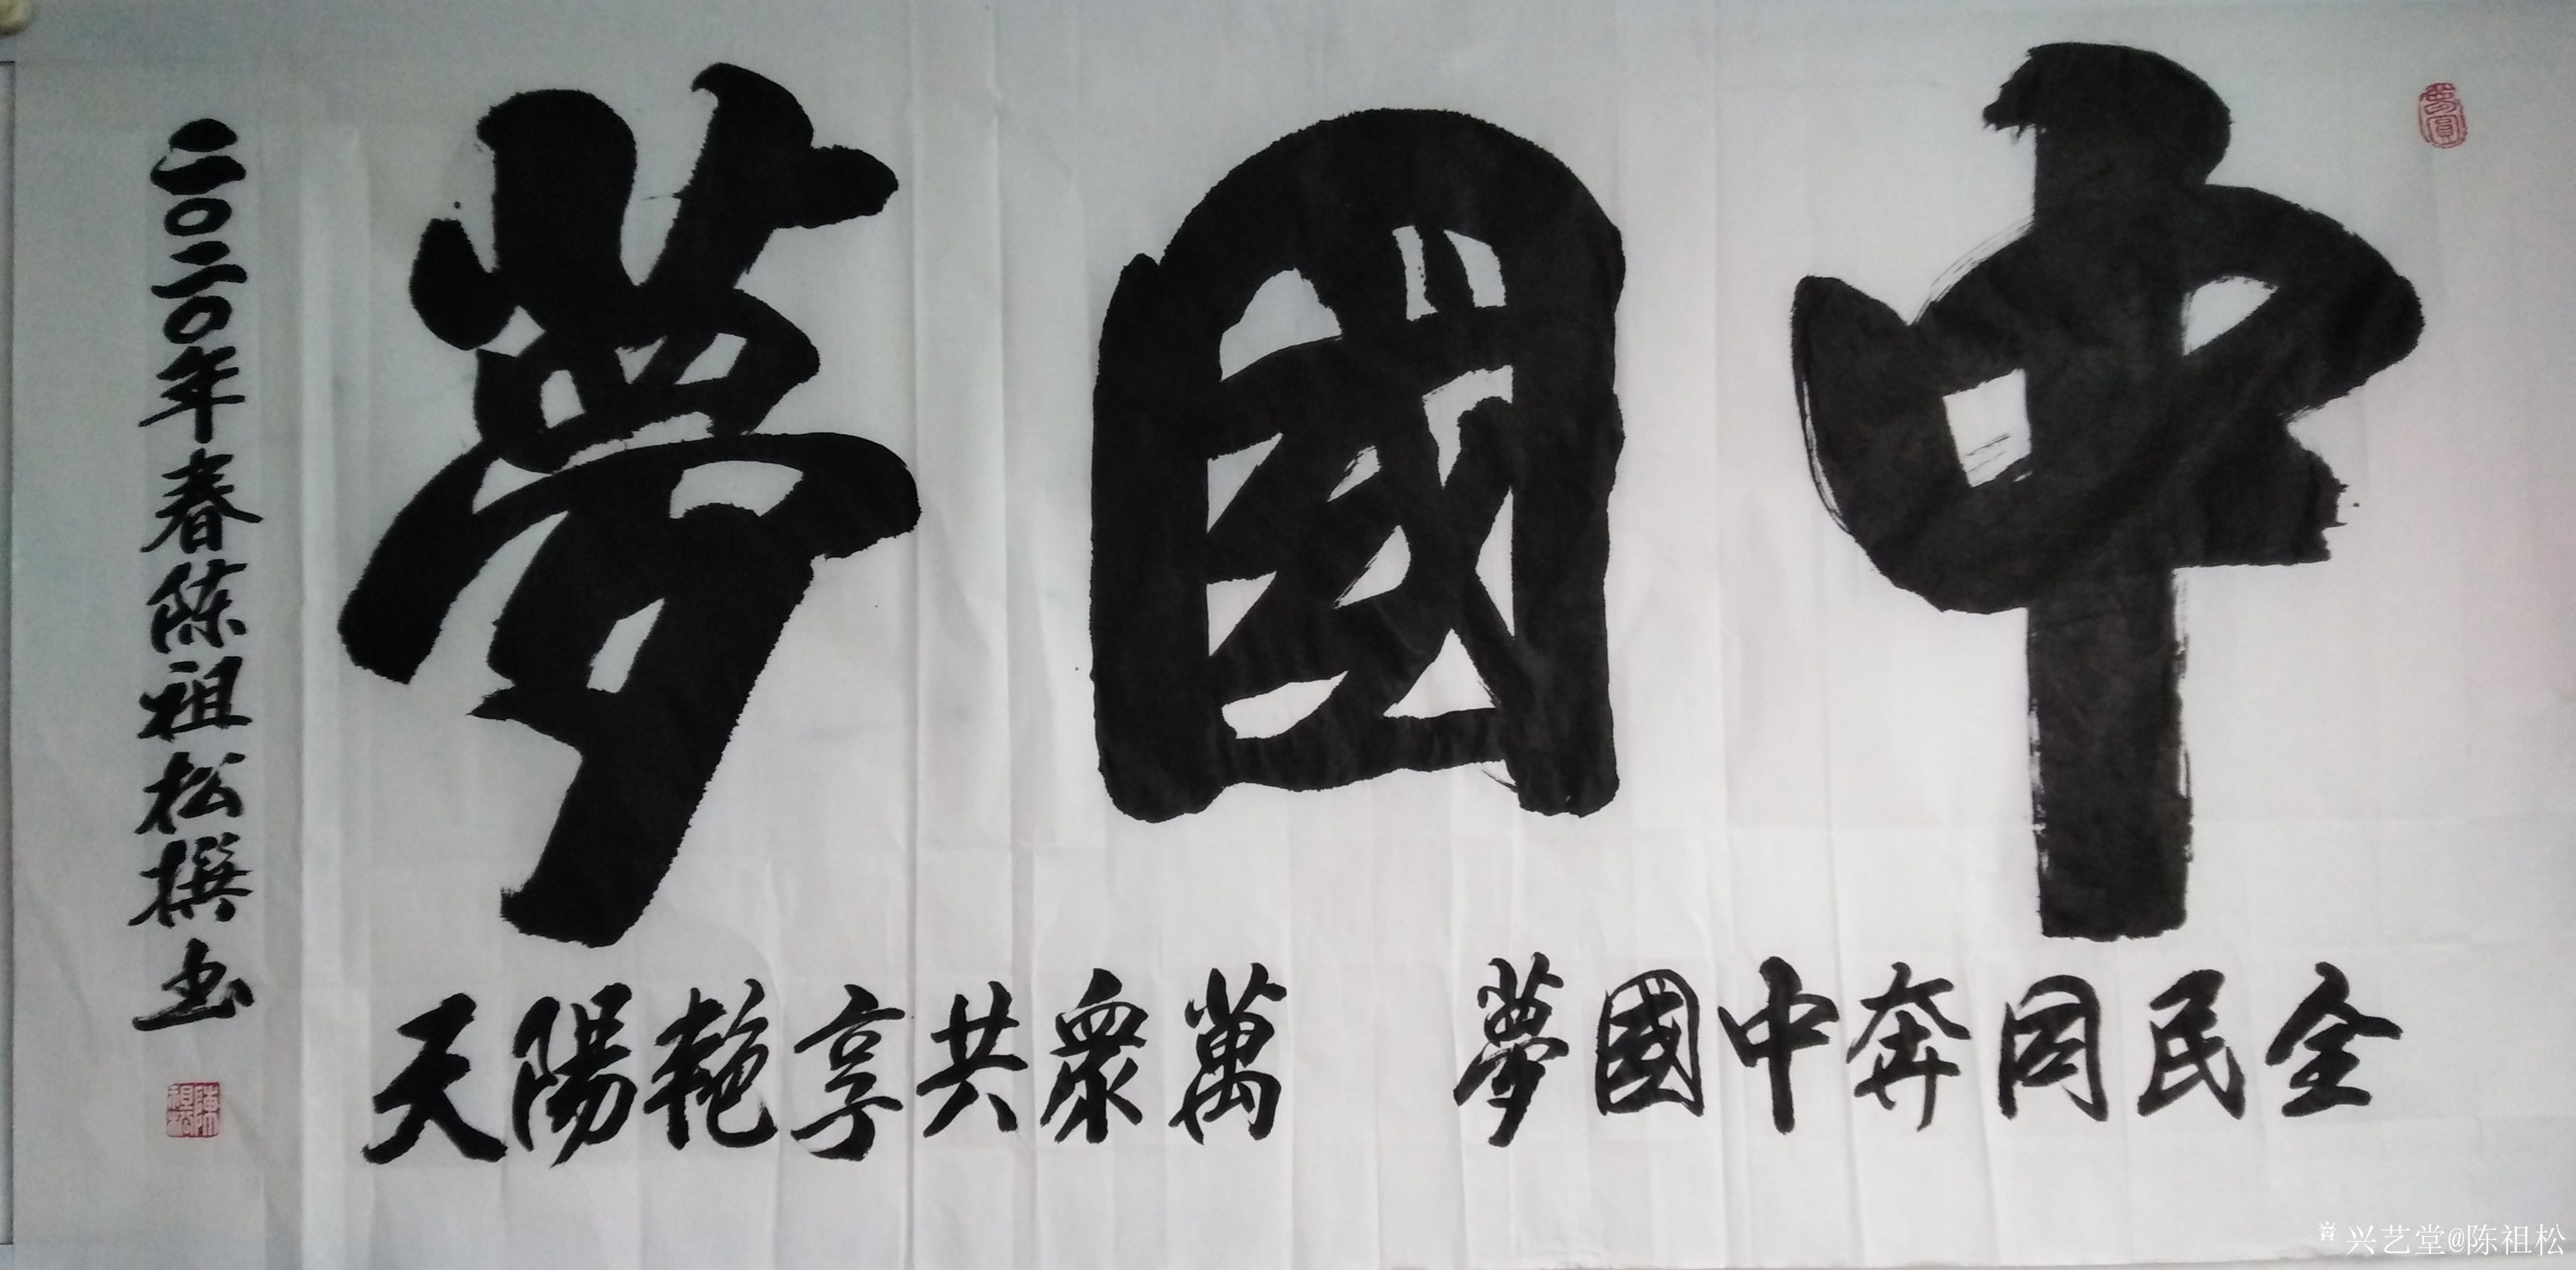 中國夢
全民同奔中國夢 萬衆共享艳陽天
二〇二〇年春陈祖松撰书
夢圓
兴艺堂@陈祖松